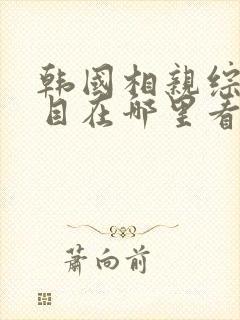 韩国相亲综
目在哪里看
萧向前